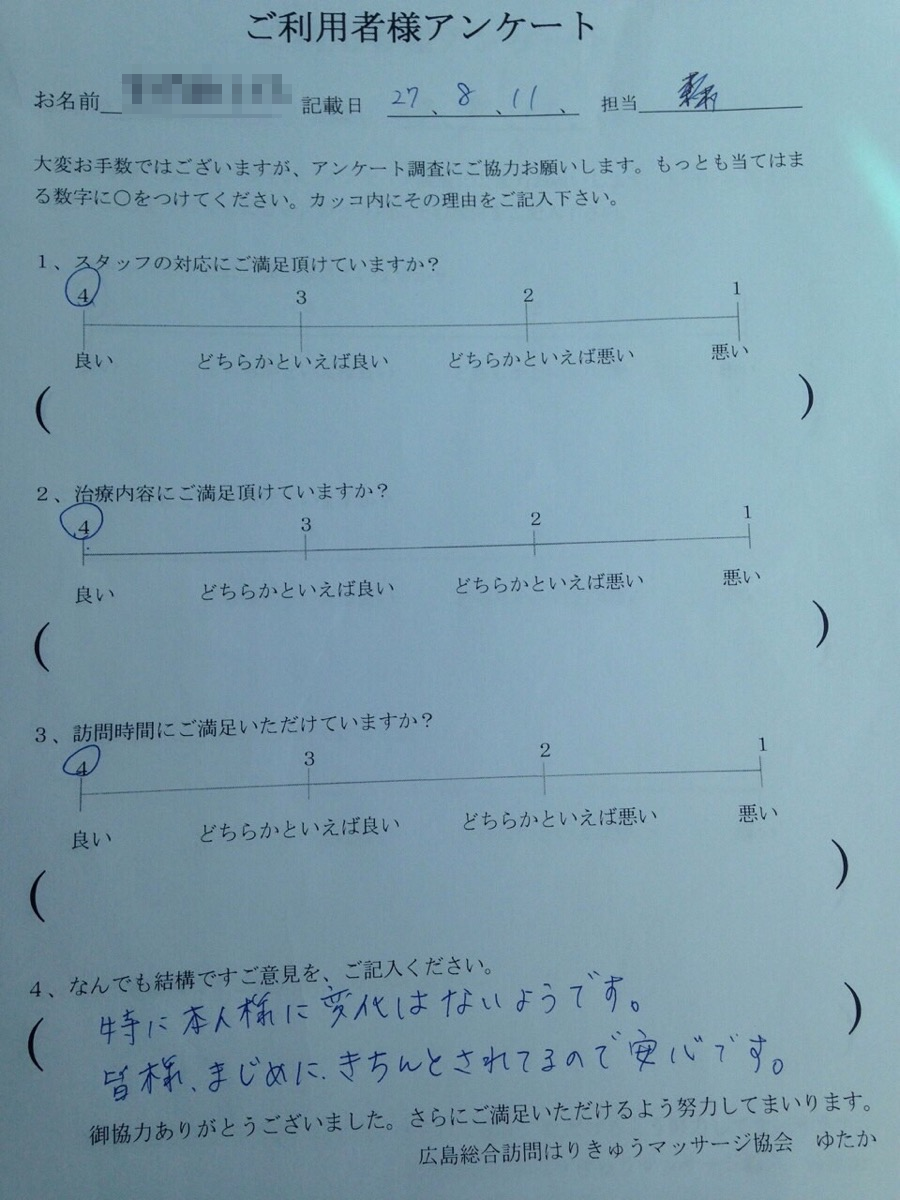 ご利用者様アンケート
お名前 記載日 27、8、11、 担当
大変お手数ではございますが、アンケート調査にご協力お願いします。もっとも当てはま
る数字に○をつけてください。カッコ内にその理由をご記入下さい。
1、スタッフの対応にご満足頂けていますか？
4 3 2 1
良い どちらかといえば良い どちらかといえば悪い 悪い
( )
2、治療内容にご満足頂けていますか？
4 3 2 1
良い どちらかといえば良い どちらかといえば悪い 悪い
( )
3、訪問時間にご満足いただけていますか？
4 3 2 1
良い どちらかといえば良い どちらかといえば悪い 悪い
( )
4、なんでも結構ですご意見を、ご記入ください。
( 特に本人様に変化はないようです。 )
皆様、まじめに、きちんとされてるので安心です。
御協力ありがとうございました。さらにご満足いただけるよう努力してまいります。
広島総合訪問はりきゅうマッサージ協会 ゆたか